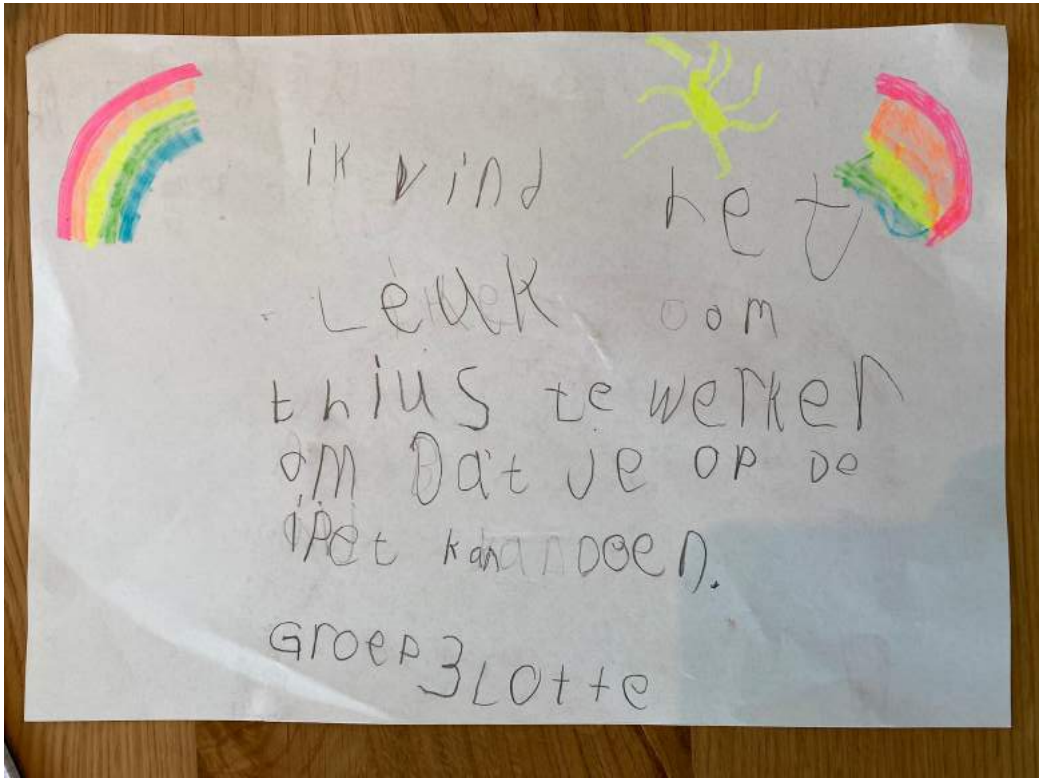 ik vind het
Leuk oom
thius te werken
om Dat je op De
ipet kan DOEN.
Groep 3 LOtte